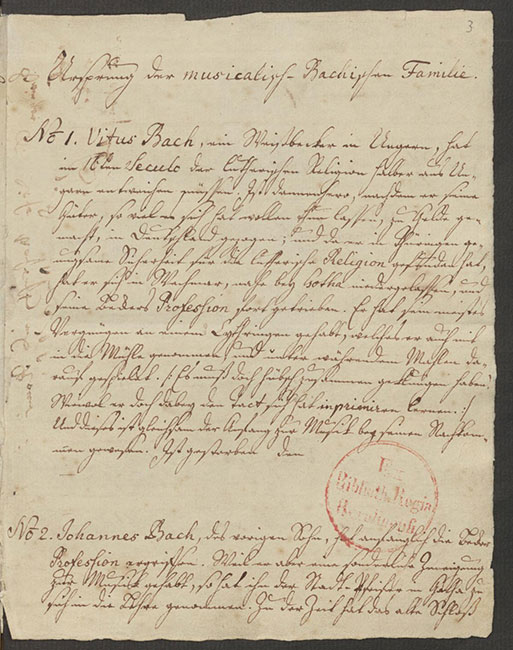 3
Ursprung der musicalisch-Bachischen Familie.
No 1. Vitus Bach, ein Weißbecker in Ungern, hat
im 16ten Seculo der lutherischen Religion halber aus Un-
garn entweichen müßen. Ist dannenhero, nachdem er seine
Güter, so viel es sich hat wollen thun laßen, zu Gelde ge-
macht, in Deutschland gezogen; und da er in Thüringen ge-
nugsame Sicherheit für die lutherische Religion gefunden hat,
hat er sich in Wechmar, nahe bey Gotha niedergelaßen, und
seine Beckers Profession fort getrieben. Er hat sein meistes
Vergnügen an einem Cythringen gehabt, welches er auch mit
in die Mühle genommen, und unter währendem Mahlen da-
rauf gespielet. (Es muß doch hübsch zusammen geklungen haben!
Wiewol er doch dabey den Tact sich hat inprimiren lernen.)
Und dieses ist gleichsam der Anfang zur Music bey seinen Nachkom-
men gewesen. Ist gestorben den
Ex
Biblioth. Regia
Berolinensi.
No 2. Johannes Bach, des vorigen Sohn, hat anfänglich die Becker
Profession ergriffen. Weil er aber eine sonderliche Zuneigung
zur Music gehabt, so hat ihn der Stadt Pfeiffer in Gotha zu
sich in die Lehre genommen. Zu der Zeit hat das alte Schloß